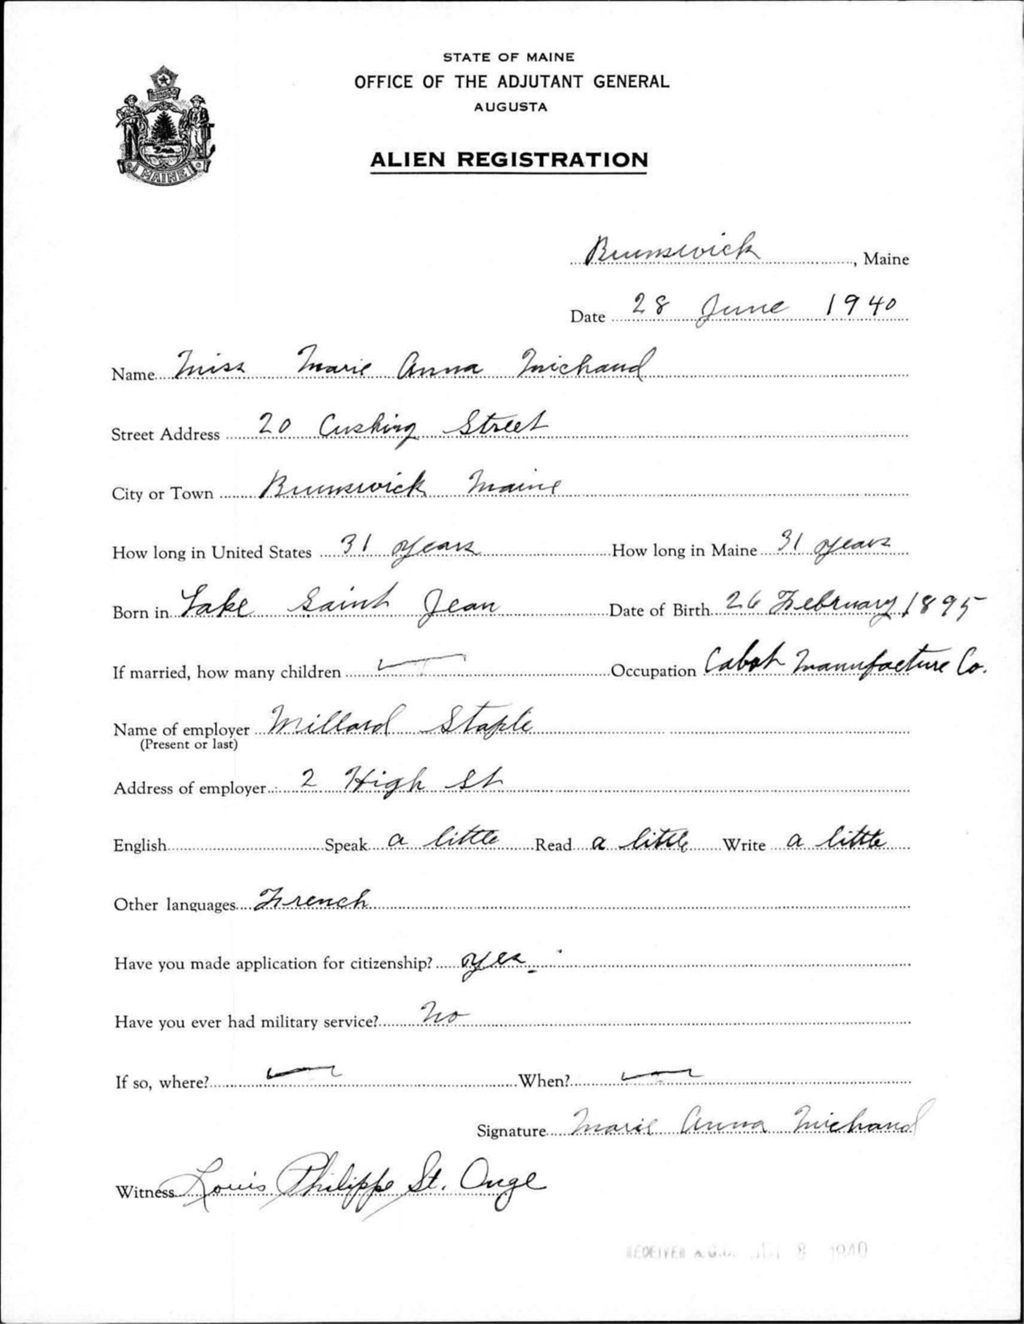 STATE OF MAINE
OFFICE OF THE ADJUTANT GENERAL
AUGUSTA
ALIEN REGISTRATION
MAINE
Brunswick, Maine
Date 28 June 1940
Name Miss Marie Anna Michaud
Street Address 20 Cushing Street
City or Town Brunswick Maine
How long in United States 31 years How long in Maine 31 years
Born in Lake Saint Jean Date of Birth 26 February 1895
If married, how many children Occupation Cabot Manufacture Co.
Name of employer Millard Staple
(Present or last)
Address of employer 2 High St
English Speak a little Read a little Write a little
Other languages French
Have you made application for citizenship? yes
Have you ever had military service? No
If so, where? When?
Signature Marie Anna Michaud
Witness Louis Philippe St. Onge
RECEIVED A.G.O. 8 1940